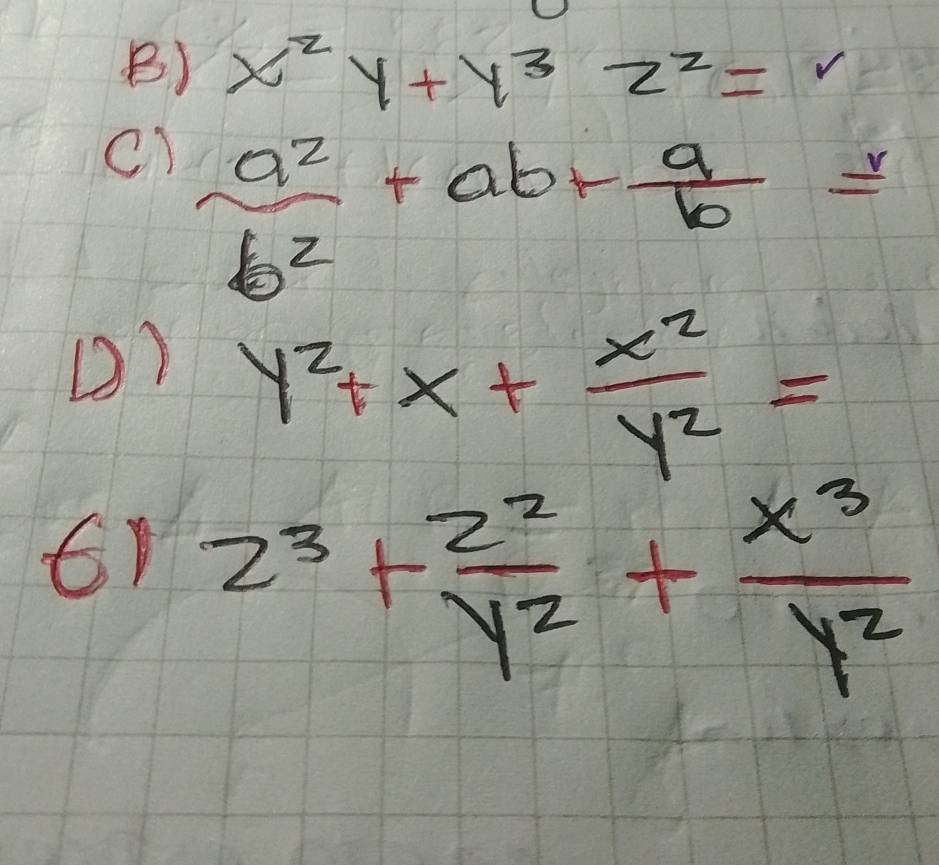 B) x² y + y³ z² = ✓
C) a²/b² + ab + a/b = ✓
D) y² + x + x²/y² =
6) z³ + z²/y² + x³/y²